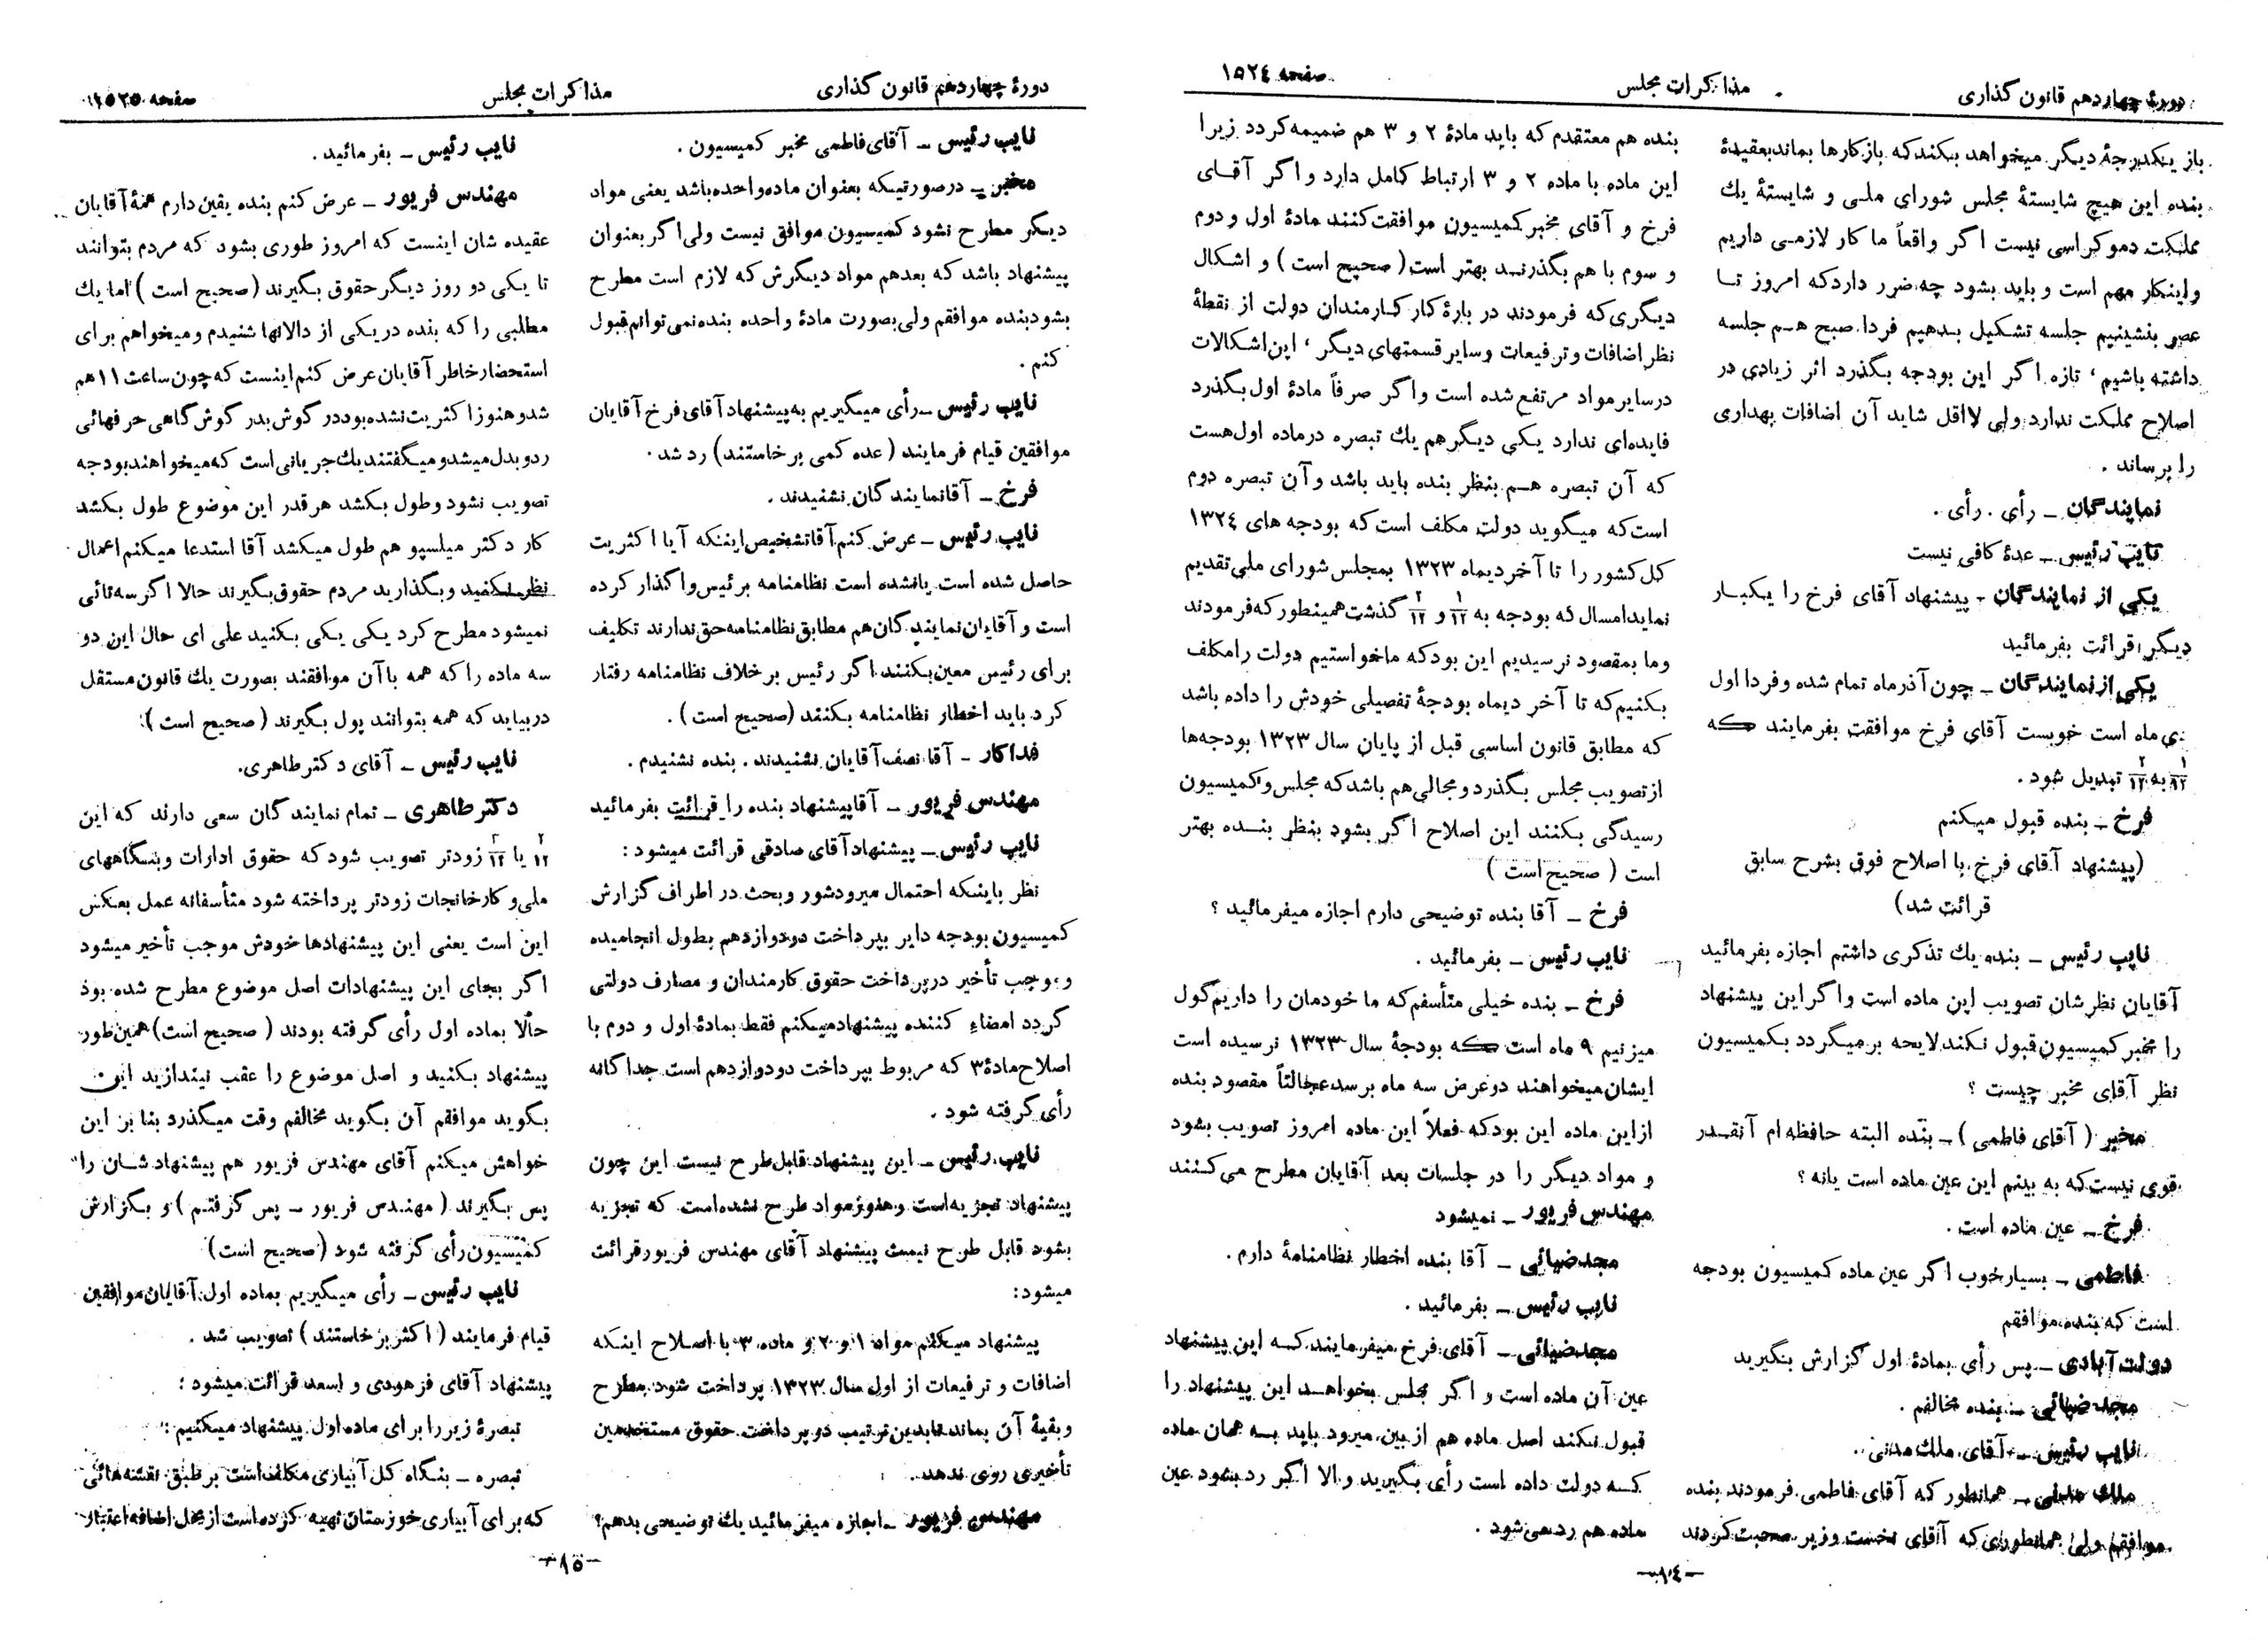 دورهٔ چهاردهم قانون گذاری
مذاکرات مجلس
صفحه ۱۵۲٤
باز یکدرجهٔ دیگر میخواهد بکند که باز کارها بماند بعقیدهٔ
بنده این هیچ شایستهٔ مجلس شورای ملی و شایستهٔ یك
مملکت دموکراسی نیست اگر واقعاً ما کار لازمی داریم
و اینکار مهم است و باید بشود چه ضرر دارد که امروز تا
عصر بنشینیم جلسه تشکیل بدهیم فردا صبح هم جلسه
داشته باشیم ، تازه اگر این بودجه بگذرد اثر زیادی در
اصلاح مملکت ندارد ولی لااقل شاید آن اضافات بهداری
را برساند .
نمایندگان ـ رأی . رأی .
نایب رئیس ـ عدهٔ کافی نیست
یکی از نمایندگان ـ پیشنهاد آقای فرخ را یکبار
دیگر قرائت بفرمائید
یکی از نمایندگان ـ چون آذرماه تمام شده و فردا اول
دی ماه است خوبست آقای فرخ موافقت بفرمایند که
۱/۱۲ به ۲/۱۲ تبدیل شود .
فرخ ـ بنده قبول میکنم
(پیشنهاد آقای فرخ با اصلاح فوق بشرح سابق
قرائت شد)
نایب رئیس ـ بنده یك تذکری داشتم اجازه بفرمائید
آقایان نظرشان تصویب این ماده است و اگر این پیشنهاد
را مخبر کمیسیون قبول نکند لایحه برمیگردد بکمیسیون
نظر آقای مخبر چیست ؟
مخبر ( آقای فاطمی ) ـ بنده البته حافظه ام آنقدر
قوی نیست که به بینم این عین ماده است یا نه ؟
فرخ ـ عین ماده است .
فاطمی ـ بسیار خوب اگر عین ماده کمیسیون بودجه
است که بنده موافقم
دولت آبادی ـ پس رأی بمادهٔ اول گزارش بگیرید
مجد ضیائی ـ بنده مخالفم .
نایب رئیس ـ آقای ملك مدنی .
ملك مدنی ـ همانطور که آقای فاطمی فرمودند بنده
موافقم ولی همانطوری که آقای نخست وزیر صحبت کردند
بنده هم معتقدم که باید مادهٔ ۲ و ۳ هم ضمیمه گردد زیرا
این ماده با ماده ۲ و ۳ ارتباط کامل دارد و اگر آقای
فرخ و آقای مخبر کمیسیون موافقت کنند مادهٔ اول و دوم
و سوم با هم بگذرند بهتر است ( صحیح است ) و اشکال
دیگری که فرمودند در بارهٔ کار کارمندان دولت از نقطهٔ
نظر اضافات و ترفیعات و سایر قسمتهای دیگر ، این اشکالات
در سایر مواد مرتفع شده است و اگر صرفاً مادهٔ اول بگذرد
فایده‌ای ندارد یکی دیگر هم یك تبصره در ماده اول هست
که آن تبصره هم بنظر بنده باید باشد و آن تبصره دوم
است که میگوید دولت مکلف است که بودجه های ۱۳۲٤
کل کشور را تا آخر دیماه ۱۳۲۳ بمجلس شورای ملی تقدیم
نماید امسال که بودجه به ۱/۱۲ و ۲/۱۲ گذشت همینطور که فرمودند
و ما بمقصود نرسیدیم این بود که ما خواستیم دولت را مکلف
بکنیم که تا آخر دیماه بودجهٔ تفصیلی خودش را داده باشد
که مطابق قانون اساسی قبل از پایان سال ۱۳۲۳ بودجه‌ها
از تصویب مجلس بگذرد و مجالی هم باشد که مجلس و کمیسیون
رسیدگی بکنند این اصلاح اگر بشود بنظر بنده بهتر
است ( صحیح است )
فرخ ـ آقا بنده توضیحی دارم اجازه میفرمائید ؟
نایب رئیس ـ بفرمائید .
فرخ ـ بنده خیلی متأسفم که ما خودمان را داریم گول
میزنیم ۹ ماه است که بودجهٔ سال ۱۳۲۳ نرسیده است
ایشان میخواهند در عرض سه ماه برسد عجالتاً مقصود بنده
از این ماده این بود که فعلاً این ماده امروز تصویب بشود
و مواد دیگر را در جلسات بعد آقایان مطرح می کنند
مهندس فریور ـ نمیشود
مجد ضیائی ـ آقا بنده اخطار نظامنامهٔ دارم .
نایب رئیس ـ بفرمائید .
مجد ضیائی ـ آقای فرخ میفرمایند که این پیشنهاد
عین آن ماده است و اگر مجلس بخواهد این پیشنهاد را
قبول نکند اصل ماده هم از بین میرود باید به همان ماده
که دولت داده است رأی بگیرید و الا اگر رد بشود عین
ماده هم رد می شود .
ـ۱٤ـ
دورهٔ چهاردهم قانون گذاری
مذاکرات مجلس
صفحه ۱۵۲۵
نایب رئیس ـ آقای فاطمی مخبر کمیسیون .
مخبر ـ در صورتیکه بعنوان ماده واحده باشد یعنی مواد
دیگر مطرح نشود کمیسیون موافق نیست ولی اگر بعنوان
پیشنهاد باشد که بعد هم مواد دیگرش که لازم است مطرح
بشود بنده موافقم ولی بصورت مادهٔ واحده بنده نمی توانم قبول
کنم .
نایب رئیس ـ رأی میگیریم به پیشنهاد آقای فرخ آقایان
موافقین قیام فرمایند ( عده کمی برخاستند) رد شد .
فرخ ـ آقا نمایندگان نشنیدند .
نایب رئیس ـ عرض کنم آقا تشخیص اینکه آیا اکثریت
حاصل شده است یا نشده است نظامنامه برئیس واگذار کرده
است و آقایان نمایندگان هم مطابق نظامنامه حق ندارند تکلیف
برای رئیس معین بکنند اگر رئیس بر خلاف نظامنامه رفتار
کرد باید اخطار نظامنامه بکنند (صحیح است) .
فداکار ـ آقا نصف آقایان نشنیدند . بنده نشنیدم .
مهندس فریور ـ آقا پیشنهاد بنده را قرائت بفرمائید
نایب رئیس ـ پیشنهاد آقای صادقی قرائت میشود :
نظر باینکه احتمال میرود شور و بحث در اطراف گزارش
کمیسیون بودجه دایر بپرداخت دو دوازدهم بطول انجامیده
و موجب تأخیر در پرداخت حقوق کارمندان و مصارف دولتی
گردد امضاء کننده پیشنهاد میکنم فقط بمادهٔ اول و دوم با
اصلاح مادهٔ ۳ که مربوط بپرداخت دو دوازدهم است جداگانه
رأی گرفته شود .
نایب رئیس ـ این پیشنهاد قابل طرح نیست این چون
پیشنهاد تجزیه است و هنوز مواد طرح نشده است که تجزیه
بشود قابل طرح نیست پیشنهاد آقای مهندس فریور قرائت
میشود:
پیشنهاد میکنم مواد ۱ و ۲ و ماده ۳ با اصلاح اینکه
اضافات و ترفیعات از اول سال ۱۳۲۳ پرداخت شود مطرح
و بقیهٔ آن بماند تا بدین ترتیب در پرداخت حقوق مستخدمین
تأخیری روی ندهد .
مهندس فریور ـ اجازه میفرمائید یك توضیحی بدهم ؟
نایب رئیس ـ بفرمائید .
مهندس فریور ـ عرض کنم بنده یقین دارم همهٔ آقایان
عقیده شان اینست که امروز طوری بشود که مردم بتوانند
تا یکی دو روز دیگر حقوق بگیرند ( صحیح است ) اما یك
مطلبی را که بنده در یکی از دالانها شنیدم و میخواهم برای
استحضار خاطر آقایان عرض کنم اینست که چون ساعت ۱۱ هم
شد و هنوز اکثریت نشده بود در گوش بدر گوش گاهی حرفهائی
رد و بدل میشد و میگفتند یك جریانی است که میخواهند بودجه
تصویب نشود و طول بکشد هر قدر این موضوع طول بکشد
کار دکتر میلسپو هم طول میکشد آقا استدعا میکنم اعمال
نظر نکنید و بگذارید مردم حقوق بگیرند حالا اگر سه تائی
نمیشود مطرح کرد یکی یکی بکنید علی ای حال این دو
سه ماده را که همه با آن موافقند بصورت یك قانون مستقل
در بیاید که همه بتوانند پول بگیرند ( صحیح است ).
نایب رئیس ـ آقای دکتر طاهری.
دکتر طاهری ـ تمام نمایندگان سعی دارند که این
۲/۱۲ یا ۳/۱۲ زودتر تصویب شود که حقوق ادارات و بنگاههای
ملی و کارخانجات زودتر پرداخته شود متأسفانه عمل بعکس
این است یعنی این پیشنهادها خودش موجب تأخیر میشود
اگر بجای این پیشنهادات اصل موضوع مطرح شده بود
حالا بماده اول رأی گرفته بودند ( صحیح است) همین طور
پیشنهاد بکنید و اصل موضوع را عقب نیندازید این
بگوید موافقم آن بگوید مخالفم وقت میگذرد بنا بر این
خواهش میکنم آقای مهندس فریور هم پیشنهادشان را
پس بگیرند ( مهندس فریور ـ پس گرفتم ) و بگزارش
کمیسیون رأی گرفته شود (صحیح است)
نایب رئیس ـ رأی میگیریم بماده اول آقایان موافقین
قیام فرمایند ( اکثر برخاستند ) تصویب شد .
پیشنهاد آقای فرهودی و اسعد قرائت میشود :
تبصرهٔ زیر را برای ماده اول پیشنهاد میکنیم :
تبصره ـ بنگاه کل آبیاری مکلف است بر طبق نقشه هائی
که برای آبیاری خوزستان تهیه کرده است از محل اضافه اعتبار
ـ۱۵ـ